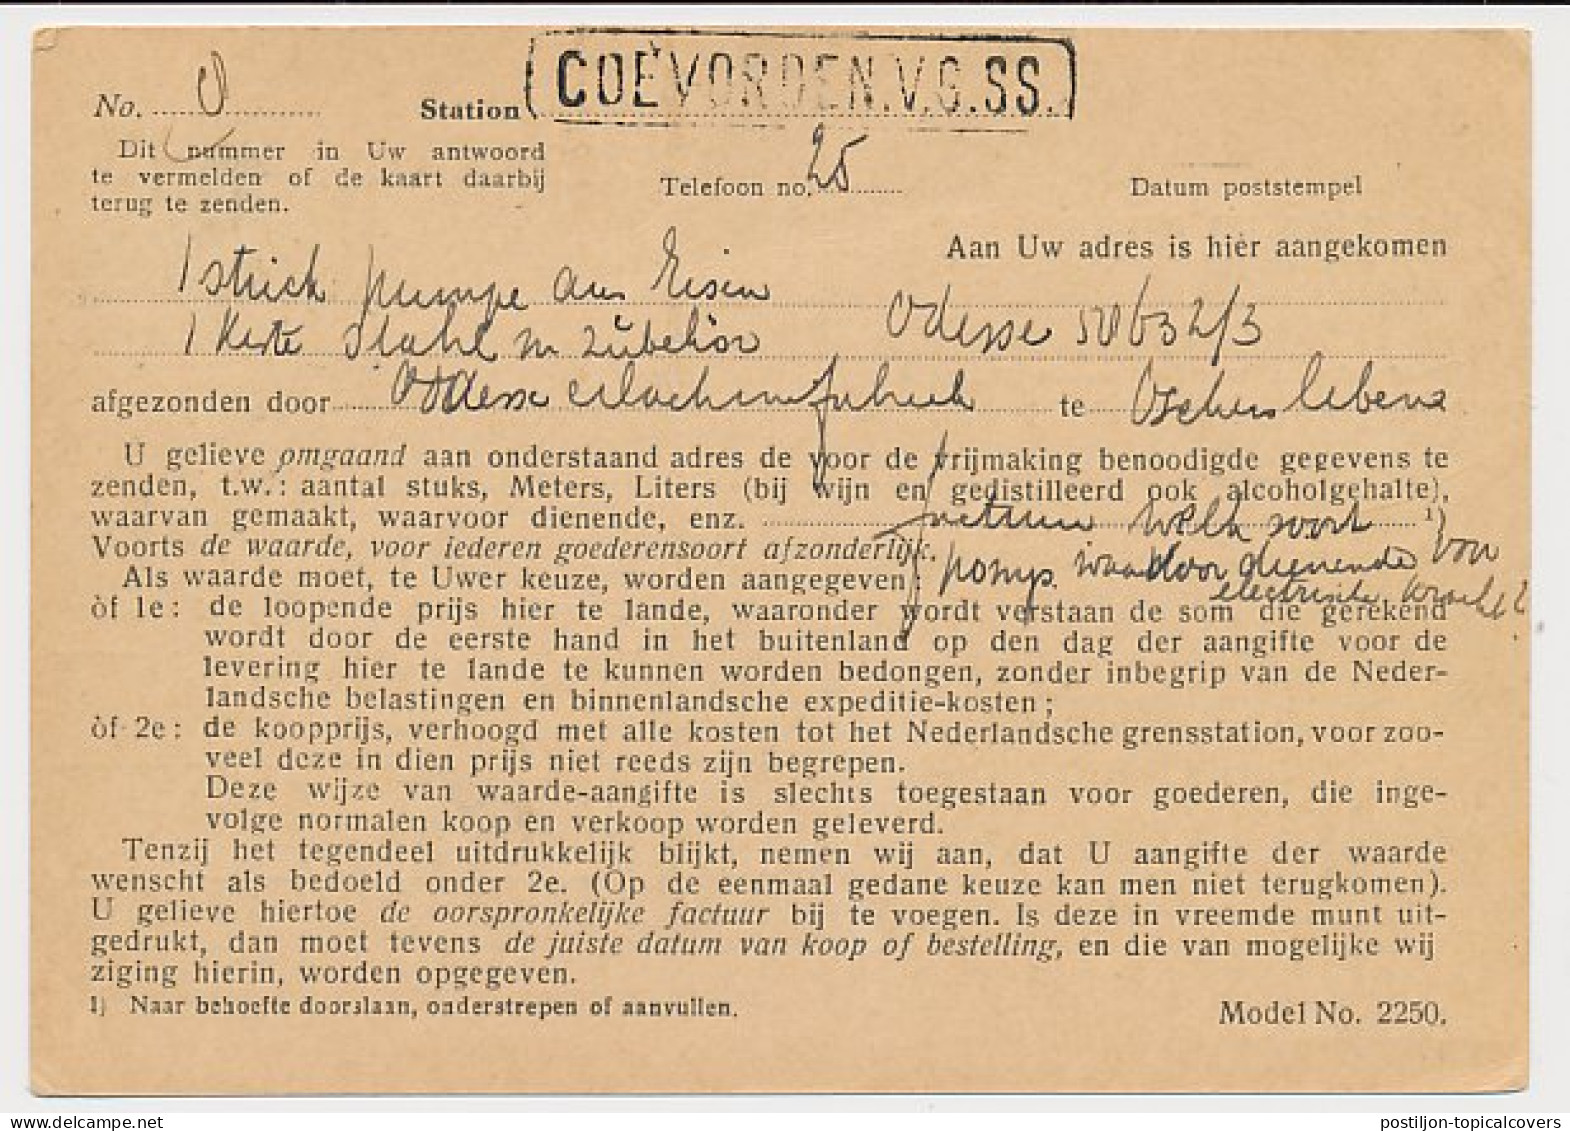 COEVORDEN.V.G.SS.
No. Station
Dit nummer in Uw antwoord
te vermelden of de kaart daarbij
terug te zenden.
Telefoon no. 25 Datum poststempel
Aan Uw adres is hier aangekomen
1 stück pumpe aus Eisen
1 Kiste Stahl m zübehör Odesse 50632/3
afgezonden door Odesse Maschinefabriek te Oschersleben
U gelieve omgaand aan onderstaand adres de voor de vrijmaking benoodigde gegevens te
zenden, t.w.: aantal stuks, Meters, Liters (bij wijn en gedistilleerd ook alcoholgehalte),
waarvan gemaakt, waarvoor dienende, enz. welk soort 1)
Voorts de waarde, voor iederen goederensoort afzonderlijk. pomp waarvoor dienende
Als waarde moet, te Uwer keuze, worden aangegeven: electrische
òf 1e: de loopende prijs hier te lande, waaronder wordt verstaan de som die gerekend
wordt door de eerste hand in het buitenland op den dag der aangifte voor de
levering hier te lande te kunnen worden bedongen, zonder inbegrip van de Neder-
landsche belastingen en binnenlandsche expeditie-kosten;
òf 2e: de koopprijs, verhoogd met alle kosten tot het Nederlandsche grensstation, voor zoo-
veel deze in dien prijs niet reeds zijn begrepen.
Deze wijze van waarde-aangifte is slechts toegestaan voor goederen, die inge-
volge normalen koop en verkoop worden geleverd.
Tenzij het tegendeel uitdrukkelijk blijkt, nemen wij aan, dat U aangifte der waarde
wenscht als bedoeld onder 2e. (Op de eenmaal gedane keuze kan men niet terugkomen).
U gelieve hiertoe de oorspronkelijke factuur bij te voegen. Is deze in vreemde munt uit-
gedrukt, dan moet tevens de juiste datum van koop of bestelling, en die van mogelijke wij
ziging hierin, worden opgegeven.
1) Naar behoefte doorslaan, onderstrepen of aanvullen.
Model No. 2250.
www.delcampe.net
postiljon-topicalcovers